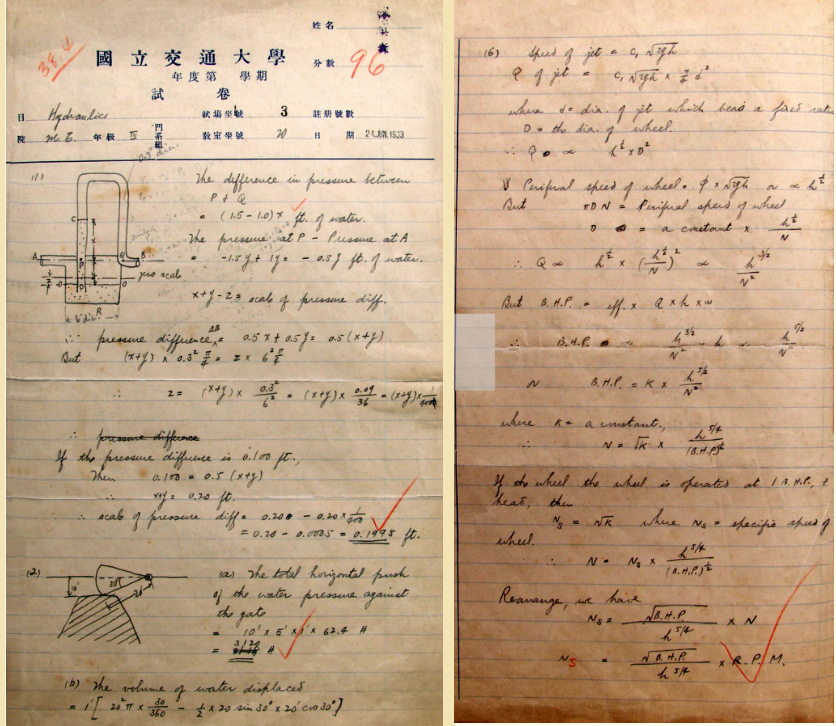 姓名
國立交通大學
分數 96
38.4
年度第 學期
試卷
目 Hydraulics 試場坐號 3 註册號數
院 M.E. 年級 IV 門系組 教室坐號 20 日期 24 JUN. 1933
(1)
The difference in pressure between
P & Q
= (1.5 - 1.0)x ft. of water.
The pressure at P - Pressure at A
= -1.5y + 1y = -0.5y ft. of water.
C
A
B
zero scale
R
6" dia.
x+y-z = scale of pressure diff.
∴ pressure difference AB = 0.5x + 0.5y = 0.5(x+y)
But (x+y) × 0.3² π/4 = z × 6² π/4
∴ z = (x+y) × 0.3²/6² = (x+y) × 0.09/36 = (x+y) × 1/400
∴ pressure difference
If the pressure difference is 0.100 ft.,
Then 0.100 = 0.5 (x+y)
∴ x+y = 0.20 ft.
∴ scale of pressure diff = 0.200 - 0.20 × 1/400
= 0.20 - 0.0005 = 0.1995 ft.
(2)
10'
30°
(a) The total horizontal push
of the water pressure against
the gate
= 10' × 5' × 1' × 62.4 #
= 3120 #
(b) The volume of water displaced
= 1' [ 20² π × 30/360 - 1/2 × 20 sin 30° × 20' cos 30° ]
(6) Speed of jet = c₁ √2gh
Q of jet = c₁ √2gh × π/4 d²
where d = dia. of jet which bears a fixed ratio
D = the dia. of wheel.
∴ Q ∝ h^½ × D²
Perifiral speed of wheel = φ × √2gh or ∝ h^½
But πDN = Perifiral speed of wheel
D = a constant × h^½/N
∴ Q ∝ h^½ × (h^½/N)² ∝ h^3/2/N²
But B.H.P. = eff. × Q × h × w
∴ B.H.P. ∝ h^3/2/N² × h ∝ h^5/2/N²
or B.H.P. = K × h^5/2/N²
where K = a constant.,
∴ N = √K × h^5/4/(B.H.P.)^½
If the wheel the wheel is operated at 1 B.H.P., +
head, then
N_s = √K where N_s = specific speed of
wheel.
∴ N = N_s × h^5/4/(B.H.P.)^½
Rearrange, we have
N_s = √B.H.P./h^5/4 × N
N_s = √B.H.P./h^5/4 × R.P.M.